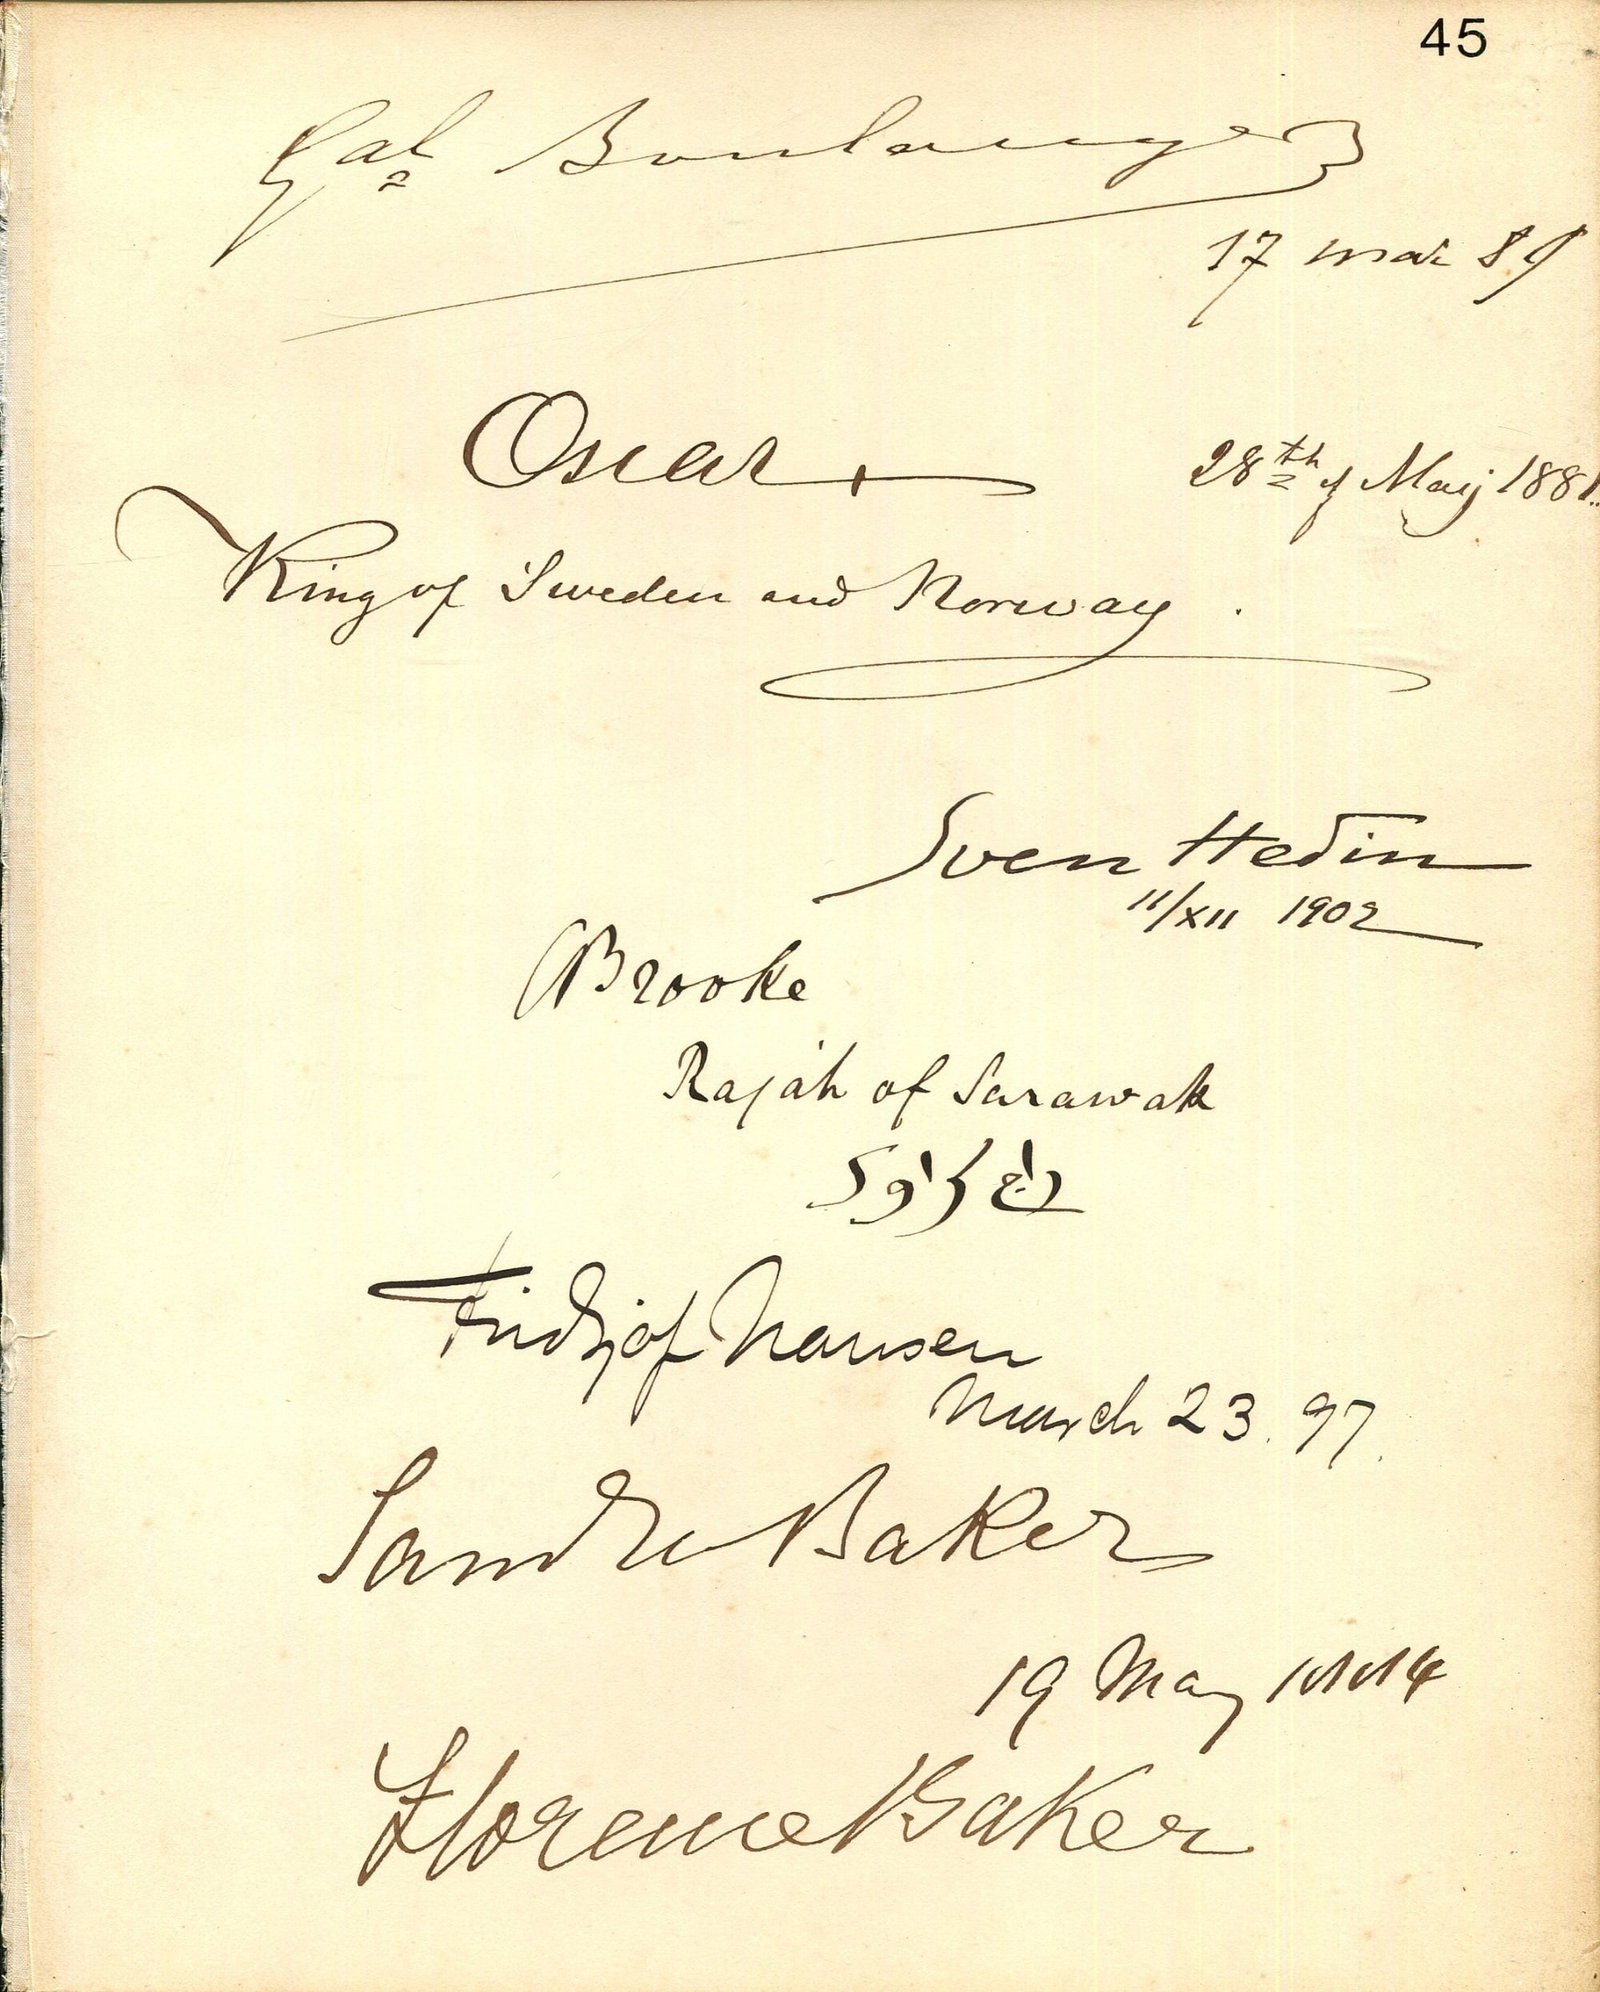 45
Gal Boulanger
17 mai 89
Oscar
28th of Maij 1881.
King of Sweden and Norway.
Sven Hedin
11/XII 1902
CBrooke
Rajah of Sarawak
Fridtjof Nansen
March 23. 97.
Baker
19 May
Florence Baker